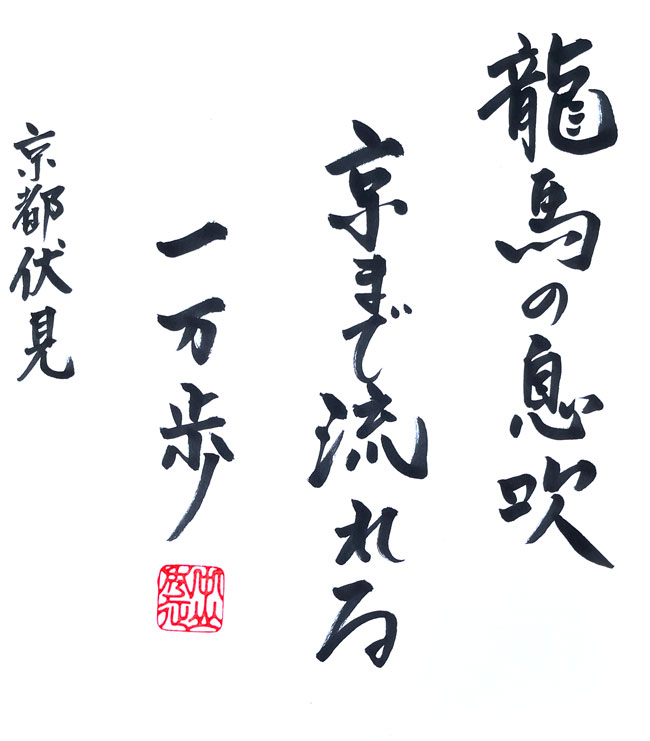 龍馬の息吹
京まで流れる
一万歩
京都伏見